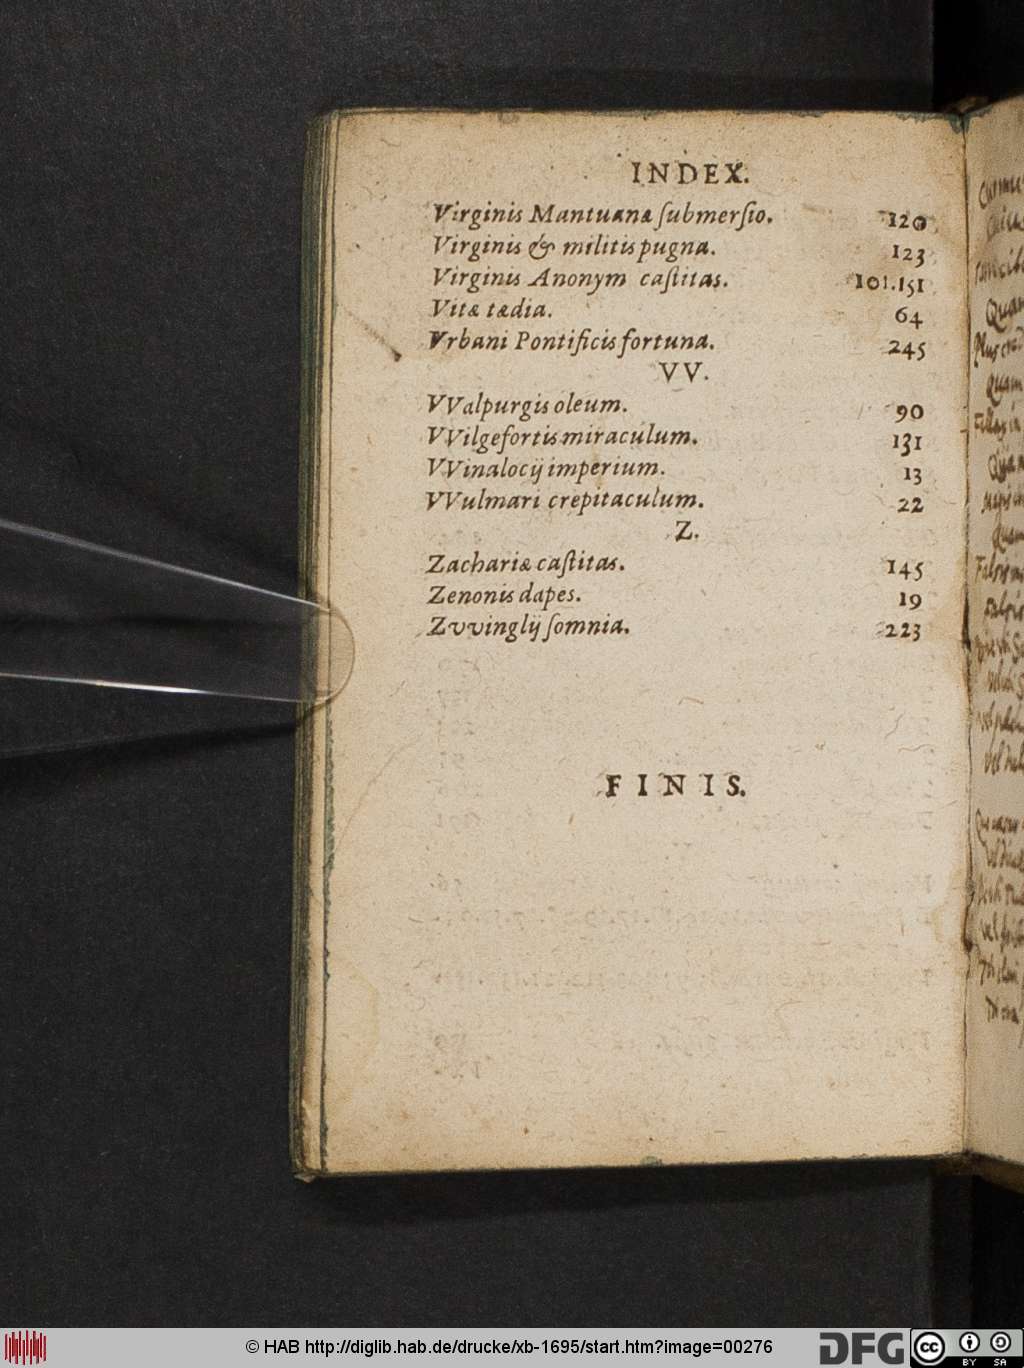 INDEX.
Virginis Mantuanæ ſubmerſio. 120
Virginis & militis pugna. 123
Virginis Anonym caſtitas. 101.151
Vitæ tædia. 64
Vrbani Pontificis fortuna. 245
VV.
VValpurgis oleum. 90
VVilgefortis miraculum. 131
VVinalocij imperium. 13
VVulmari crepitaculum. 22
Z.
Zachariæ caſtitas. 145
Zenonis dapes. 19
Zvvinglij ſomnia. 223
FINIS.
Quam
quam
Quam
© HAB http://diglib.hab.de/drucke/xb-1695/start.htm?image=00276
DFG
cc BY SA